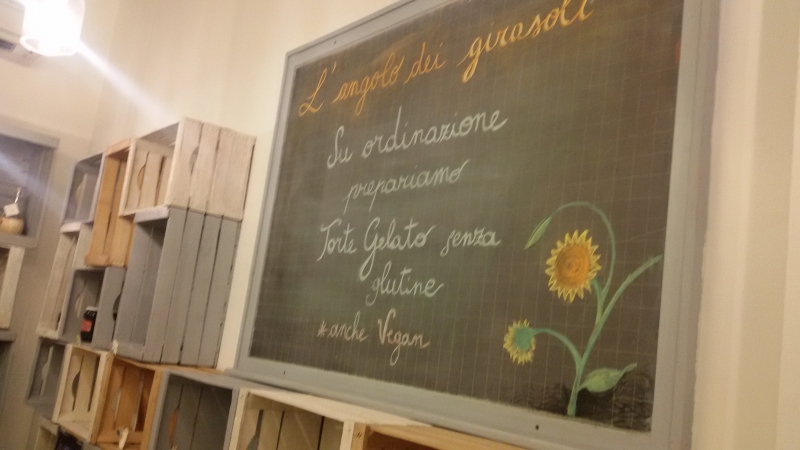 L'angolo dei girasoli
Su ordinazione
prepariamo
Torte Gelato senza
glutine
*anche Vegan